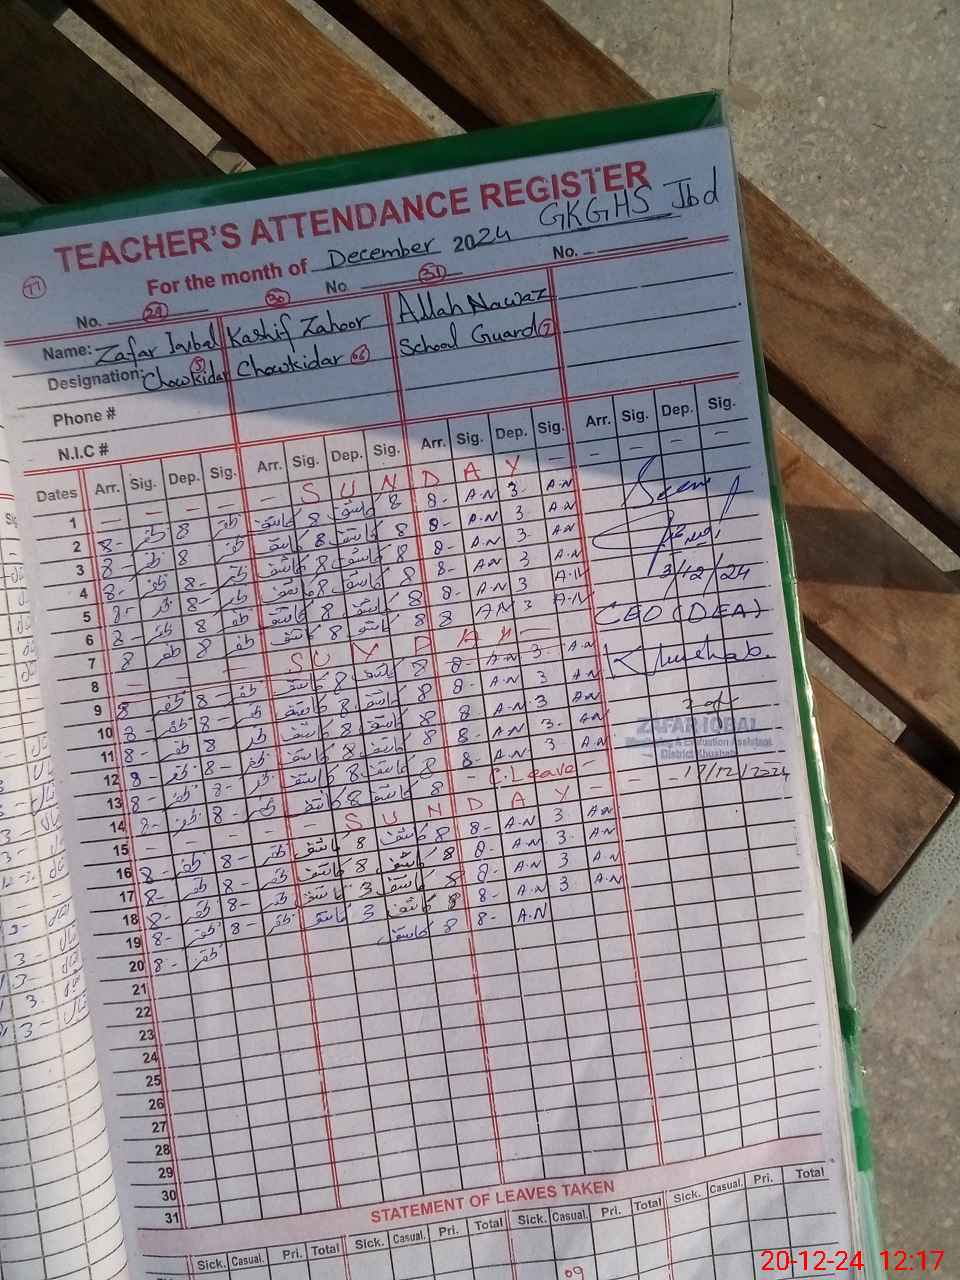 TEACHER'S ATTENDANCE REGISTER
GKGHS Jbd
For the month of December 2024
77
No. 29 No 30 31 No.
Name: Zafar Iqbal Kashif Zahoor Allah Nawaz
Designation: Chowkidar Chowkidar 66 School Guard
Phone #
N.I.C #
Dates Arr. Sig. Dep. Sig. Arr. Sig. Dep. Sig. Arr. Sig. Dep. Sig. Arr. Sig. Dep. Sig.
1 S U N D A Y
2 8- ظفر 8 ظفر کاشف 8 کاشف 8 8- A.N 3- A.N
3 8- ظفر 8 ظفر کاشف 8 کاشف 8 8- A.N 3- A.N
4 8- ظفر 8- ظفر کاشف 8 کاشف 8 8- A.N 3 A.N
5 8- ظفر 8- ظفر کاشف 8 کاشف 8 8- A.N 3 A.N
6 8- ظفر 8 ظفر کاشف 8 کاشف 8 8- A.N 3 A.N
7 8 ظفر 8 ظفر کاشف 8 کاشف 8 8 A.N 3 A.N
3/12/24
CEO (DEA)
Khushab.
8 S U N D A Y
9 8- ظفر 8- ظفر کاشف 8 کاشف 8 8- A.N 3- A.N
10 8- ظفر 8- ظفر کاشف 8 کاشف 8 8- A.N 3 A.N
11 8- ظفر 8 ظفر کاشف 8 کاشف 8 8 A.N 3 A.N
12 8- ظفر 8- ظفر کاشف 8 کاشف 8 8- A.N 3- A.N
13 8- ظفر 8- ظفر کاشف 8 کاشف 8 8- A.N 3 A.N
14 8- ظفر 8- ظفر کاشف 8 کاشف 8 - C.Leave -
ZAFAR IQBAL
Monitoring & Evaluation Assistant
District Khushab
17/12/2024
15 S U N D A Y
16 8- ظفر 8- ظفر کاشف 8 کاشف 8 8- A.N 3 A.N
17 8- ظفر 8- ظفر کاشف 8 کاشف 8 8- A.N 3- A.N
18 8- ظفر 8- ظفر کاشف 3 کاشف 8 8- A.N 3 A.N
19 8- ظفر 8- ظفر کاشف 3 کاشف 8 8- A.N 3 A.N
20 8- ظفر کاشف 8 8- A.N
21
22
23
24
25
26
27
28
29
30
31
STATEMENT OF LEAVES TAKEN
Sick. Casual. Pri. Total Sick. Casual. Pri. Total Sick. Casual. Pri. Total Sick. Casual. Pri. Total
09
20-12-24 12:17